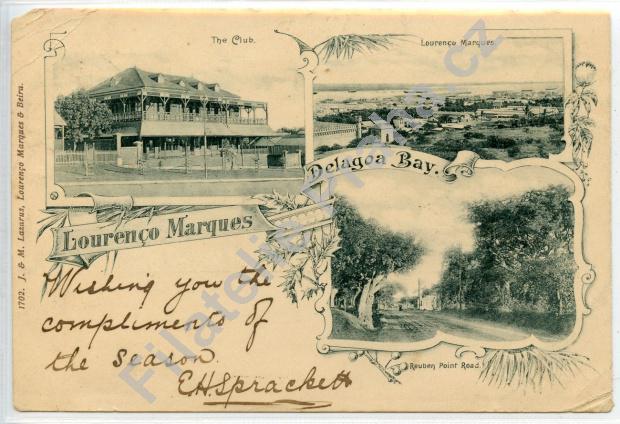 The Club.
Lourenço Marques.
Delagoa Bay.
Lourenço Marques
Reuben Point Road.
1702. J. & M. Lazarus, Lourenço Marques & Beira.
Wishing you the
compliments of
the season.
EHSprackett
Filatelie Praha.cz